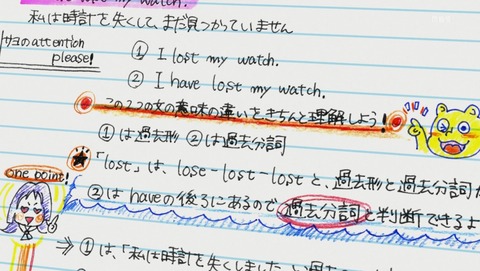 lose my watch.
私は時計を失くして、まだ見つかっていません
サヨのattention please!
① I lost my watch.
② I have lost my watch.
この2つの文の意味の違いをきちんと理解しよう!
①は過去形 ②は過去分詞
one point!
★「lost」は、lose-lost-lostと、過去形と過去分詞が
②はhaveの後ろにあるので過去分詞と判断できるよ
⇒ ①は、「私は時計を失くしました